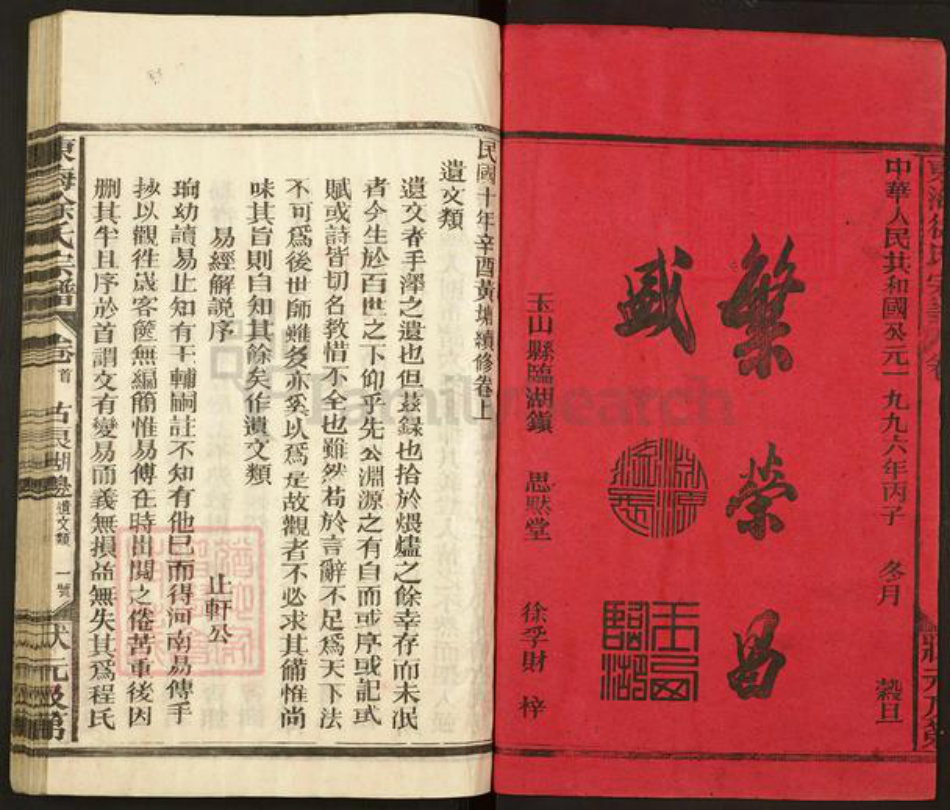 中華人民共和國公元一九九六年丙子 冬月 穀旦
繁榮昌盛
玉山縣臨湖鎮 思默堂 徐孚財 梓
民國十年辛酉黃塘續修卷上
遺文類
遺文者手澤之遺也但茲錄也拾於煨燼之餘幸存而未泯
者今生於百世之下仰乎先公淵源之有自而或序或記或
賦或詩皆切名教惜不全也雖然苟於言辭不足爲天下法
不可爲後世師雖多亦奚以爲是故觀者不必求其備惟尚
味其旨則自知其餘矣作遺文類
易經解說序 止軒公
珦幼讀易止知有王輔嗣註不知有他巳而得河南易傳手
抄以觀徃歲客篋無編簡惟易傳在時出閱之倦苦重後因
刪其半且序於首謂文有變易而義無損益無失其爲程氏
東海徐氏宗譜 卷首 古良湖邊 遺文類 一號 狀元及第
FamilySearch